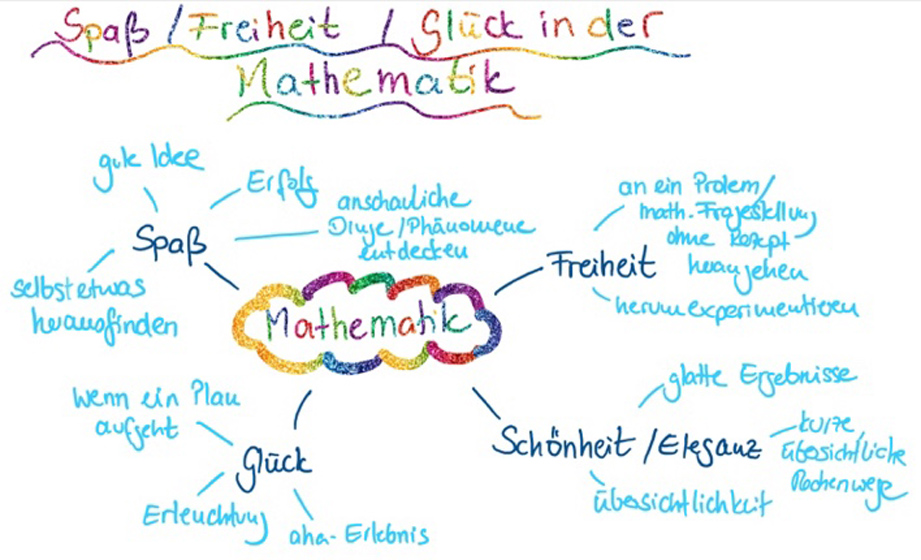 Spaß / Freiheit / Glück in der
Mathematik
gute Idee
Erfolg
anschauliche
Dinge/Phänomene
entdecken
Spaß
selbst etwas
herausfinden
an ein Prolem/
math. Fragestellung
ohne Rezept
herangehen
Freiheit
herumexperimentieren
Mathematik
wenn ein Plan
aufgeht
Glück
Erleuchtung
aha-Erlebnis
glatte Ergebnisse
Schönheit / Eleganz
kurze,
übersichtliche
Rechenwege
Übersichtlichkeit